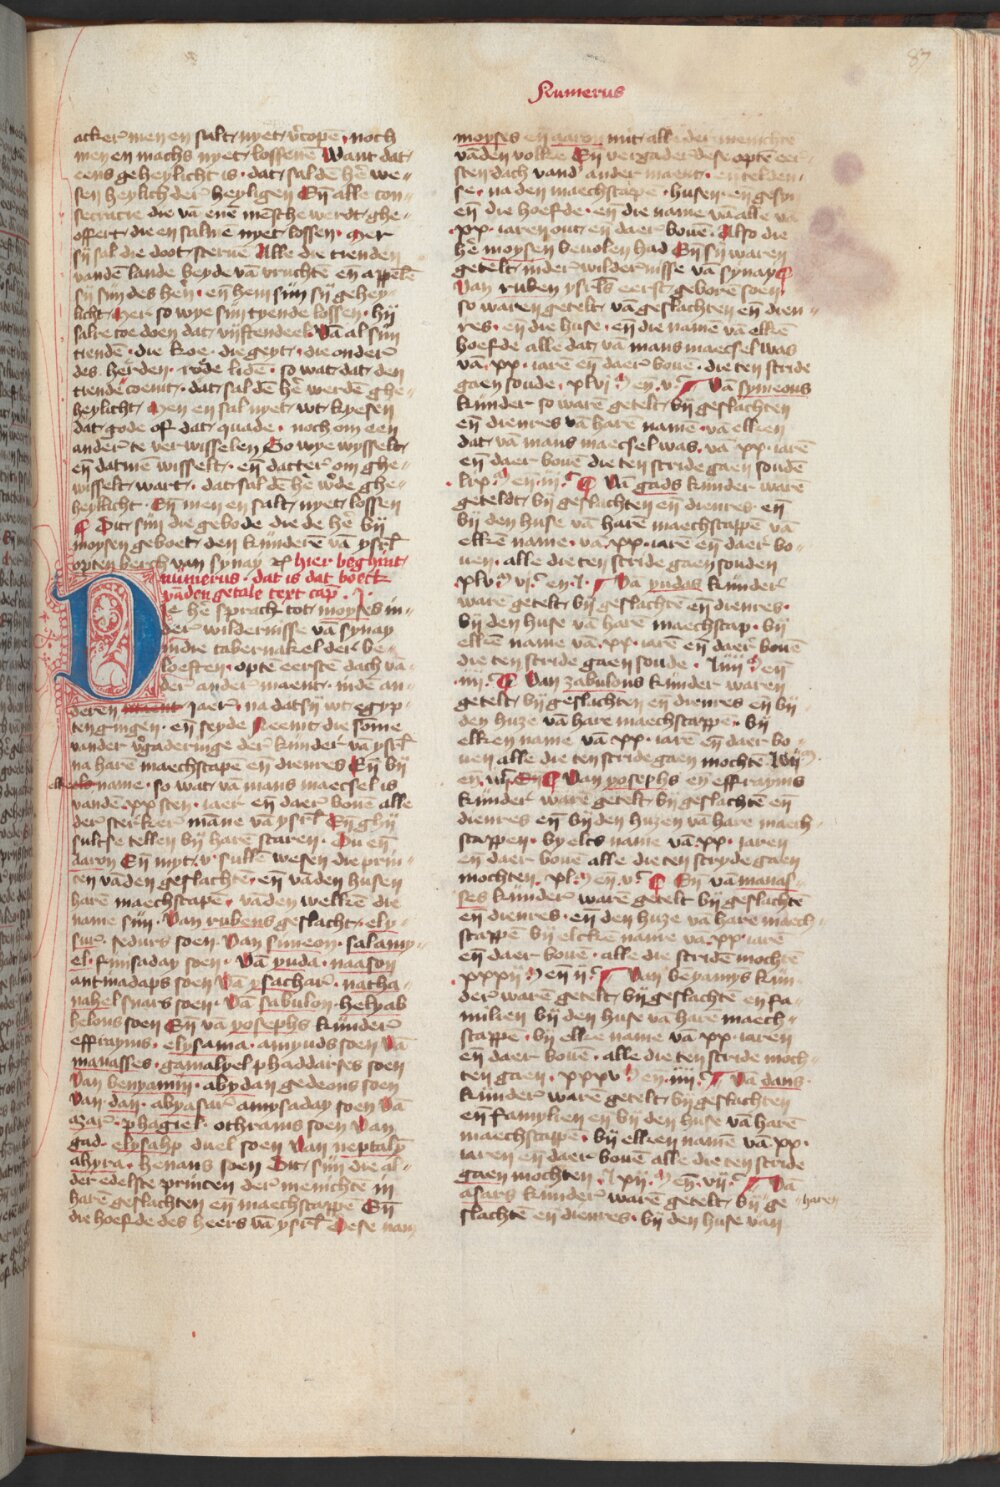 87
Numerus
acker men en salt nyet v̓cope̅ · noch
men en machs nyet lossene̅ Want dat
eens geheylicht is · dat salde̅ he̅ we-
sen heylich der heyligen En̅ alle con-
secracie die va̅ ene me̅sche werdt ghe-
offert · die en salme nyet lossen · Mer
sy̅ sal die doot sterue̅ Alle die tienden
vande̅ lande beyde va̅ vruchte̅ en appele̅
sij sijn des he̅n · en̅ hem sijn sij gehey-
licht Mer so wye sijn tyende lossen · hij
salre toe doen dat vijftendeel · Va̅ al sijn
tiende̅ · die koe · die geyt · die onder
des herden · rode lide̅ · so wat dat den
tiende coemt · dat sal de̅ he̅ werde̅ ghe-
heylicht Men en sal nyet wt kyesen
dat gode of dat quade · noch om een
ander te verwisselen So wye wysselt
en̅ datme̅ wisselt · en̅ datter om ghe-
wisselt wart · dat sal de̅ he̅ w̓de ghe-
heylicht · En̅ men en salt nyet lossen
¶ Dit sijn die gebode die de he̅ bij
moysen geboet den kijndere̅ va̅ ysrl̅
opten berch van synay hier beghint
numerus · dat is dat boeck
va̅den getale text cap · j ·
De he̅ sprack tot moyses in-
der wildernisse va̅ synay
in die tabernakel der be-
loeften · opte̅ eerste̅ dach va̅
der ander maent · in de̅ an-
deren maent Jaer · na dat sij wt egyp-
ten gingen · en̅ seyde Neemt die so̅me
vander v̓gaderinge der kijnder va̅ ysrl̅
na hare̅ maechscape en̅ dienres En̅ bij
name · so wat va̅ mans maecsel is
vande̅ xxsten · iaer en̅ daer boue̅ alle
der sterker ma̅ne va̅ ysrl̅ En̅ ghij
sultse tellen bij hare̅ scaren · Du en̅
aaron En̅ myt v sulle̅ wesen die prin-
cen va̅den geslachte̅ · en̅ va̅den husen
hare̅ maechscape̅ · va̅den welke̅ die
name sijn · Van rubens geslacht · ely-
sur · sedurs soen · Van simeon · salamy-
el · surisaday soen · Va̅ yuda · naason
aminadaps soen Va̅ ysachar · natha-
nahel suars soen · Va̅ sabulon · helyab
helons soen En̅ va̅ yosephs kijnder
effrayms · elysama · amyuds soen Va̅
manasses · gamalyel phaddarses soen
Van benyamin · abydan gedeons soen
Van dan · abyasar amysaday soen Va̅
azar · phagiel · othrams soen Van
gad · elysaph duel soen Van neptaly̅
ahyra · henans soen Dit sijn die al-
der edelste princen der menichte in
hare̅ geslachten en̅ maechscape̅ En̅
die hoefde des heers va̅ ysrl̅ Dese nam
moyses en̅ aaron mit alle der menichte
va̅den volke En̅ vergader dese opte̅ eer-
sten dach vand ander maent · en̅ telden-
se · na den maechscape̅ · husen · en gesyn
en̅ die hoefde · en̅ die name va̅ alle va̅
xx · iaren out · en̅ daer boue̅ · Also die
he̅ moysen beuolen had En̅ sij waren
getelt in der wildernisse va̅ synay ¶
Van ruben ysrl̅s eerst gebore̅ soen
so waren getelt va̅ geslachten en̅ dien-
res · en̅ die huse · en̅ die name va̅ elke̅
hoefde alle dat va̅ mans maecsel was
va̅ · xx · iare̅ en̅ daer boue̅ · die ten stride
gaen soude · xlvj M en · vC Va̅ symeons
kijnder so ware̅ getelt bij geslachten
en̅ dienres va̅ hare̅ name̅ · va̅ elken
dat va̅ mans maecsel was · va̅ xx · iare̅
en̅ daer boue̅ die ten stride gaen soude̅
lix M en · iijC ¶ Va̅ gads kijnder ware̅
geteldt bij geslachten en̅ dienres · en̅
bij den huse va̅ hare̅ maechscappe̅ va̅
elke̅ name̅ · va̅ xx · iare̅ en̅ daer bo-
uen · alle die ten stride gaen souden
xlv M vjC en · l · Va̅ yudas kijnder
ware̅ getelt bij geslachte̅ en̅ dienres ·
bij den huse va̅ hare̅ maechscap · bij
elke̅ name va̅ · xx · iare̅ en̅ daer boue̅
die ten stride gaen soude · lxxiiij M en̅
Van zabulons kijnder waren
getelt bij geslachten en̅ dienres en̅ bij
den huze va̅ hare maechscappe · bij
elken name va̅ xx · iare̅ en̅ daer bo-
uen alle die ten stride gaen mochte
¶ Van yosephs en̅ effrayms
kijnder ware̅ getelt bij geslachte̅ en̅
dienres en̅ bij den huzen va̅ hare maech-
scappen · by elcs name va̅ xx · iaren
en̅ daer boue̅ alle die ten stryde gaen
mochten · xl M en̅ vC ¶ En̅ va̅ manas-
ses kijnder ware̅ getelt bij geslachte̅
en̅ dienres · en̅ den huze va̅ hare̅ maech-
scappe̅ bij elcke̅ name va̅ xx · iare̅
en̅ daer boue̅ · alle die stride̅ mochte̅
xxxij M en̅ ijC Van beyamijs kijn-
der ware̅ getelt bij geslachte̅ en fa-
milien bij den huse va̅ hare̅ maech-
scappe̅ · bij elke name va̅ xx · iaren
en̅ daer boue̅ · alle die ten stride moch-
ten gaen · xxxv M en · iiijC Va̅ dans ·
kijnder ware̅ getelt bij geslachten
en̅ famylien en̅ bij den huse va̅ hare̅
maechscappe̅ · bij elken name̅ va̅ xx ·
iaren en̅ daer boue̅ alle die ten stride
gaen mochten · lxij M en̅ · vijC Va̅
asars kijnder ware̅ getelt bij ge- haren
slachte̅ en̅ dienres · bij den huse van